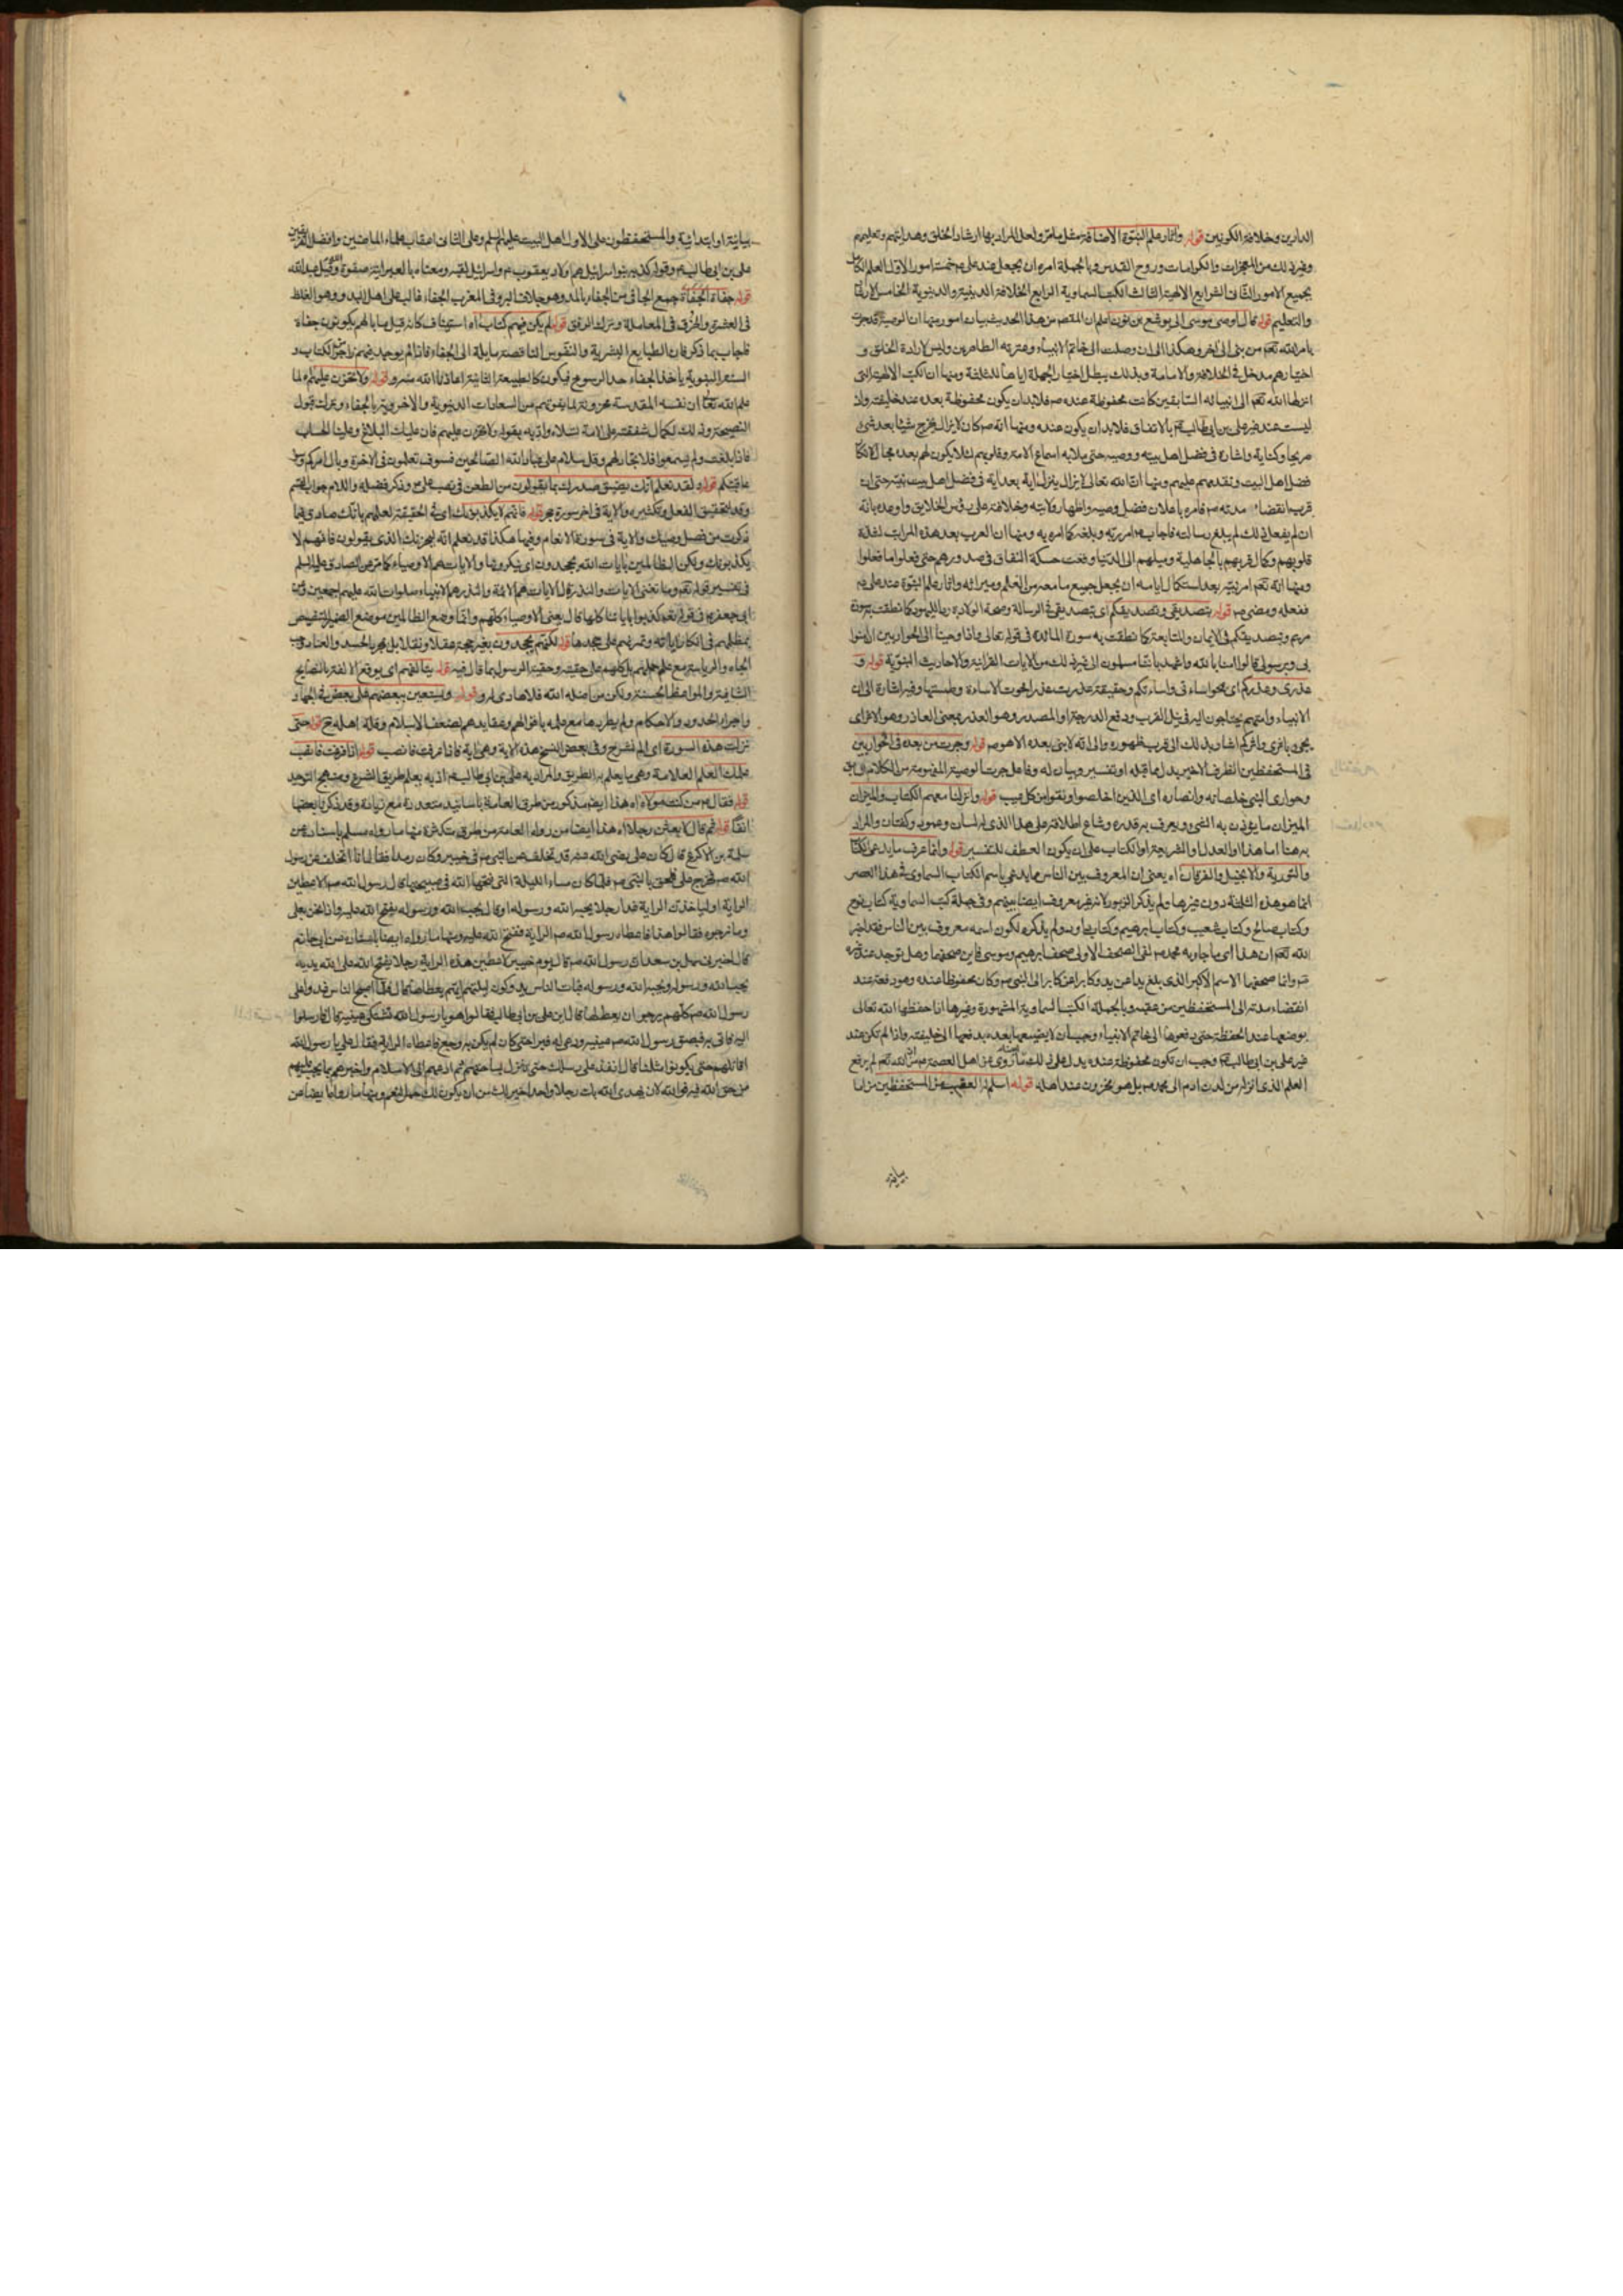 الدارين وخلافة الكونين قوله واثار علم النبوة الاضافة مثل مامر ولعل المراد بها ارشاد الخلق وهدايتهم وتعليمهم
وغير ذلك من المعجزات والكرامات وروح القدس وبالجملة امره ان يجعل عند على ع خمسة امور الاول العلم الكامل
بجميع الامور الثانى الشرايع الالهية الثالث الكتب السماوية الرابع الخلافة الدينية والدنيوية الخامس الارشاد
والتعليم قوله قال اوصى موسى الى يوشع بن نون اعلم ان المقصد من هذا الحديث بيان امور منها ان الوصية قد جرت
بامر الله تعم من نبى الى اخر وهكذا الى ان وصلت الى خاتم الانبياء وعترته الطاهرين وليس لارادة الخلق و
اختيارهم مدخل فى الخلافة والامامة وبذلك يبطل اختيار الجهلة اياها للثلثة ومنها ان الكتب الالهية التى
انزلها الله تعم الى انبيائه السابقين كانت محفوظة عنده ص فلابد ان يكون محفوظة بعده عند خليفته واذ
ليست عند غير على بن ابى طالب ع بالاتفاق فلابد ان يكون عنده ومنها انه ص كان لايزال يخرج شيئا بعد شئ
صريحا وكناية واشارة فى فضل اهل بيته ووصيه حتى ملا به اسماع الامة وقلوبهم لئلا يكون لهم بعده مجال لانكار
فضل اهل البيت وتقدمهم عليهم ومنها ان الله تعالى لايزال ينزل اية بعد اية فى فضل اهل بيت نبيه حتى ان
قرب انقضاء مدته ص فامره باعلان فضل وصيه واظهار ولايته وخلافته على رؤس الخلايق واوعده بانه
ان لم يفعل ذلك لم يبلغ رسالته فاجاب ع امر ربه وبلغه كما امره به ومنها ان العرب بعد هذه المراتب لقساوة
قلوبهم وكمال قربهم بالجاهلية وميلهم الى الدنيا وقعت حسكة النفاق فى صدورهم حتى فعلوا ما فعلوا
ومنها انه تعم امر نبيه بعد استكمال ايامه ان يجعل جميع ما معه من العلم وميراثه واثار علم النبوة عند على ع
ففعله ومضى ص قوله بتصديقى وتصديقكم اى بتصديقى فى الرسالة وصحة الولادة
مريم وبتصديقكم فى الايمان والمتابعة كما نطقت به سورة المائدة فى قوله تعالى واذ اوحيت الى الحواريين ان امنوا
بى وبرسولى قالوا امنا بالله واشهد باننا مسلمون الى غير ذلك من الايات القرانية والاحاديث النبوية قوله و
الانبياء وامتهم يحتاجون اليه فى نيل القرب ورفع الدرجة
فى المستحفظين الظرف الاخير بدل مما قبله او تفسير وبيان له وفاعل جرت الوصية المفهومة من الكلام السابق
وحوارى النبى خلصائه وانصاره اى الذين اخلصوا ونقوا من كل عيب قوله وانزلنا معهم الكتاب والميزان
الميزان ما يوزن به الشئ ويعرف به قدره وشاع اطلاقه على هذا الذى له لسان وعمود وكفتان والمراد
به هنا اما هذا او العدل او الشريعة او الكتاب على ان يكون العطف للتفسير قوله وانما عرف ما يدعى الكتاب
والتورية والانجيل والفرقان اه يعنى ان المعروف بين الناس مما يدعى باسم الكتاب السماوى فى هذا العصر
انما هو هذه الثلثة دون غيرها ولم يذكر الزبور لانه غير معروف ايضا بينهم وفى جملة كتب السماوية كتاب نوح
وكتاب صالح وكتاب شعيب وكتاب ابرهيم
الله تعم ان هذا اى ما جاء به محمد ص لفى الصحف الاولى صحف ابرهيم وموسى فاين صحفهما وهل توجد عند غيره
وانما صحفهما الاسم الاكبر الذى بلغ يدا عن يد وكابرا عن كابر الى النبى ص وكان محفوظا عنده وهو دفعه عند
انقضاء مدته الى المستحفظين من عقبه وبالجملة الكتب السماوية المشهورة وغيرها انما حفظها الله تعالى
بوضعها عند الحفظة حتى دفعوها الى خاتم الانبياء وجب ان لا يضيعها بعده بدفعها الى خليفته واذا لم تكن عند
غير على بن ابى طالب ع وجب ان تكون محفوظة عنده يدل على ذلك ما روى عن اهل العصمة ع ان الله تعم لم يرفع
العلم الذى انزله من لدن ادم الى محمد ص بل هو مخزون عند اهله قوله اسلم العقب من المستحفظين من اما
بيانية
بيانية او ابتدائية والمستحفظون على الاول اهل البيت عليهم السلم وعلى الثانى اعقاب علماء الماضين وافضل الفريقين
على بن ابى طالب ع وقوله كذبه بنو اسرائيل هم اولاد يعقوب ع واسرائيل لقبه ومعناه بالعبرانية صفوة الله وقيل عبدالله
قوله جفاة الجفاة جمع الجافى من الجفاء بالمد وهو خلاف البر وفى المغرب الجفاء غالب على اهل البدو وهو الغلظ
فى العشرة والخرق فى المعاملة وترك الرفق قوله لم يكن فيهم كتاب اه استيناف كانه قيل ما بالهم يكونون جفاة
فاجاب بما ذكر فان الطبايع البشرية والنفوس الناقصة مايلة الى الجفاء فاذا لم يوجد فيهم زاجر من الكتاب و
السنة النبوية ياخذ الجفاء حد الرسوخ فيكون كالطبيعة الثانية اعاذنا الله شره قوله ولا تحزن عليهم لما
علم الله تعالى ان نفسه المقدسة محزونة لما يفوتهم من السعادات الدنيوية والاخروية بالجفاء وترك قبول
النصيحة وذلك لكمال شفقته على الامة تسلاه وادبه بقوله ولا تحزن عليهم فان عليك البلاغ وعلينا الحساب
فاذا بلغت ولم يسمعوا فلا تجادلهم وقل سلام على عباد الله الصالحين فسوف تعلمون فى الاخرة وبال امركم وسوء
عاقبتكم قوله ولقد نعلم انك يضيق صدرك بما يقولون من الطعن فى نصب على ع وذكر فضله واللام جواب القسم
وقد لتحقيق الفعل وتكثيره والاية فى اخر سورة حجر قوله فانهم لا يكذبونك اى فى الحقيقة لعلمهم بانك صادق فيما
ذكرت من فضل وصيك والاية فى سورة الانعام وفيها هكذا قد نعلم انه ليحزنك الذى يقولون فانهم لا
يكذبونك ولكن الظالمين بايات الله يجحدون اى ينكرونها والايات هم الاوصياء كما مر عن الصادق عليه السلم
فى تفسير قوله تعم وما تغنى الايات والنذر قال الايات هم الائمة والنذر هم الانبياء صلوات الله عليهم اجمعين وعن
ابى جعفر ع فى قوله تعم كذبوا باياتنا كلها قال يعنى الاوصياء كلهم وانما وضع الظالمين موضع الضمير للتنصيص
بظلمهم فى انكار اياته وتمرنهم على جحدها قوله لكنهم يجحدون بغير حجة عقلا ونقلا بل بمجرد الحسد والعناد وحب
الجاه والرياسة مع علمهم كلهم على حقيته وحقية الرسول بما قال فيه قوله يتالفهم اى يوقع الالفة بالنصايح
الشافية والمواعظ الحسنة ولكن من اضله الله فلا هادى له قوله ويستعين ببعضهم على بعض فى الجهاد و
واجراء الحدود والاحكام ولم يطردهم مع علمه باحوالهم وعقايدهم لضعف الاسلام وقلة اهله قوله حتى
نزلت هذه السورة اى الم نشرح وفى بعض النسخ هذه الاية وهى اية فاذا فرغت فانصب قوله اذا فرغت فانصب
علمك العلم العلامة وهى ما يعلم به الطريق والمراد به على بن ابى طالب ع اذ به يعلم طريق الشرع ومنهج التوحيد
قوله فقال ص من كنت مولاه اه هذا ايضا مذكور من طرق العامة باسانيد متعددة مع زيادة وقد ذكرنا بعضها
انفا قوله ثم قال لابعثن رجلا اه هذا ايضا من رواه العامة من طرق متكثرة منها ما رواه مسلم باسناده عن
سلمة بن الاكوع قال كان على رضى الله عنه قد تخلف عن النبى ص فى خيبر وكان رمدا فقال انا اتخلف عن رسول
الله ص فخرج على فلحق بالنبى ص فلما كان مساء الليلة التى فتحها الله فى صبيحتها قال رسول الله ص لاعطين
الراية او لياخذن الراية غدا رجلا يحبه الله ورسوله او قال يحب الله ورسوله يفتح الله عليه فاذا نحن بعلى
وما نرجوه فقالوا هذا فاعطاه رسول الله ص الراية ففتح الله عليه ومنها ما رواه ايضا باسناده عن ابى حازم
قال اخبرنى سهل بن سعد ان رسول الله ص قال يوم خيبر لاعطين هذه الراية رجلا يفتح الله على يديه
يحب الله ورسوله ويحبه الله ورسوله فبات الناس يدوكون ليلتهم ايهم يعطاها قال فلما اصبح الناس غدوا على
رسول الله ص كلهم يرجوا ان يعطاها قال اين على بن ابى طالب فقالوا هو يارسول الله يشتكى عينيه قال فارسلوا
اليه فاتى به فبصق رسول الله ص عينيه ودعى له فبرا حتى كان لم يكن به وجع فاعطاه الراية فقال على يا رسول الله
اقاتلهم حتى يكونوا مثلنا قال انفذ على رسلك حتى تنزل بساحتهم ثم ادعهم الى الاسلام واخبرهم بما يجب عليهم
من حق الله فيه فوالله لان يهدى الله بك رجلا واحدا خير لك من ان يكون لك حمر النعم ومنها ما رواه ايضا عن